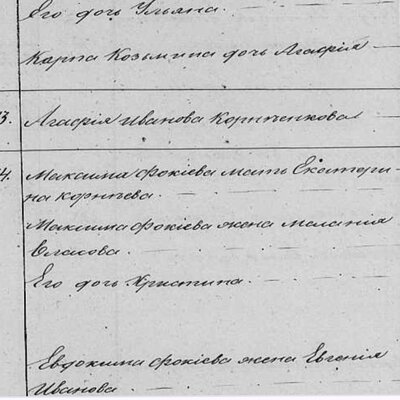 Его дочь Ульяна.
Карпа Козьмина дочь Агафія
3. Агафія Иванова Корниенкова
4. Максима Фокіева мать Екатери-
на Корнѣева.
Максима Фокіева жена Меланія
Власова.
Его дочь Христина.
Евдокима Фокіева жена Евгенія
Иванова